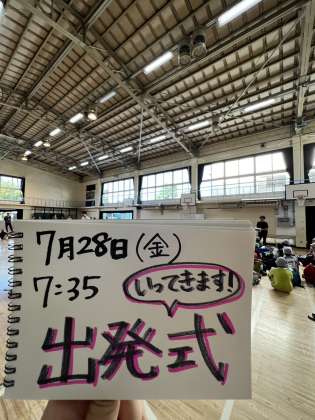 7月28日(金)
7:35
いってきます!
出発式